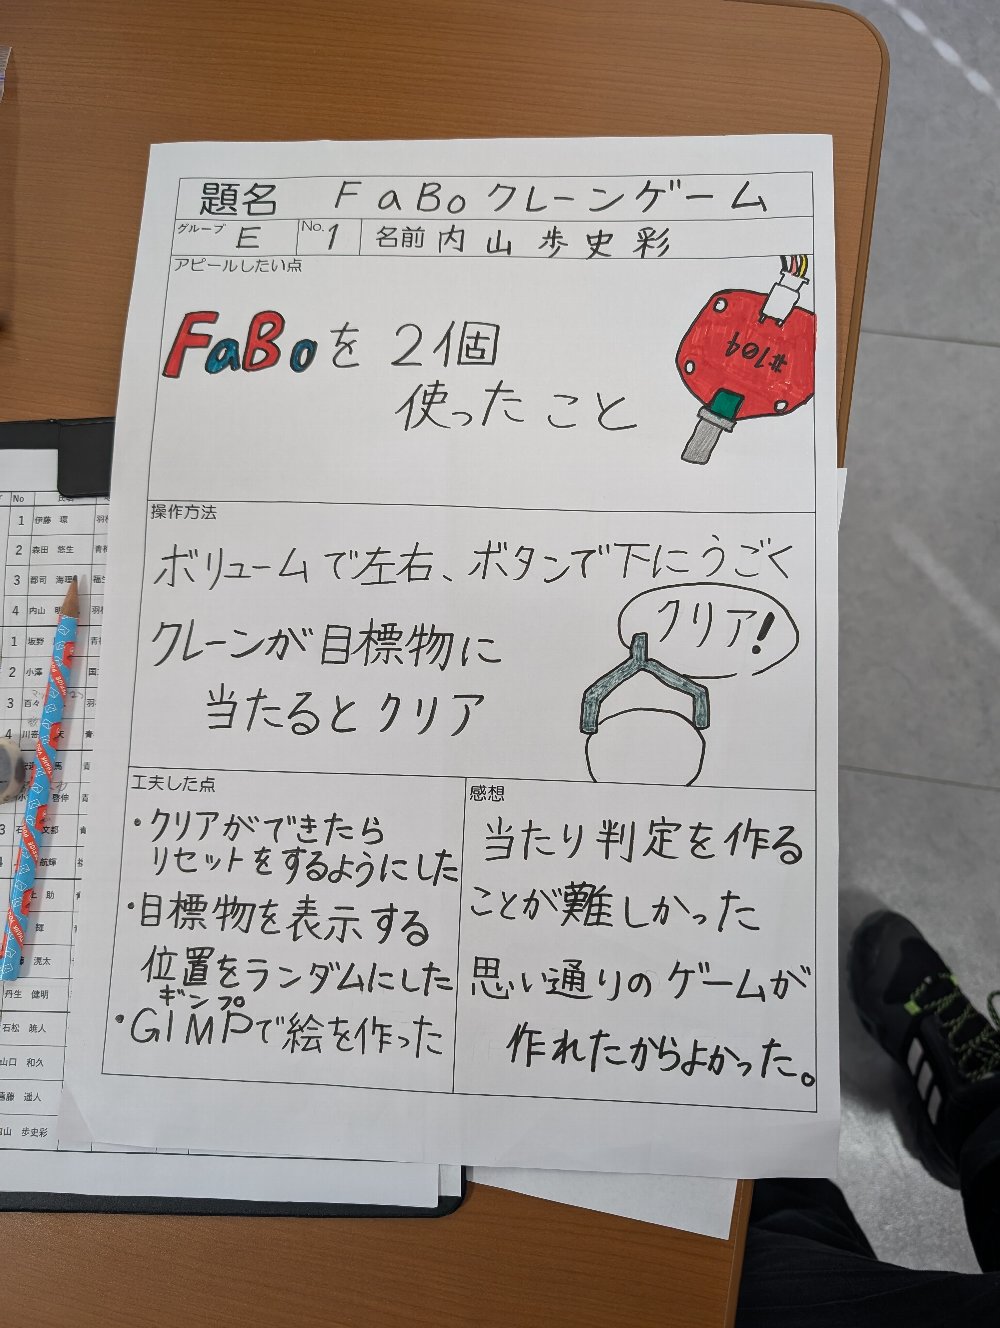 題名 FaBoクレーンゲーム
グループ E No. 1 名前 内山 歩史彩
アピールしたい点
FaBoを2個
使ったこと
#104
操作方法
ボリュームで左右、ボタンで下にうごく
クレーンが目標物に
当たるとクリア
クリア!
工夫した点
・クリアができたら
リセットをするようにした
・目標物を表示する
位置をランダムにした
ギンプ
・GIMPで絵を作った
感想
当たり判定を作る
ことが難しかった
思い通りのゲームが
作れたからよかった。
No
1 伊藤 環
2 森田 悠生
3 郡司
4 内山
1 坂野
2 小澤
3 百々
4
3
助
丹生 健明
石松 暁人
山口 和久
遠藤 遥人
山 歩史彩